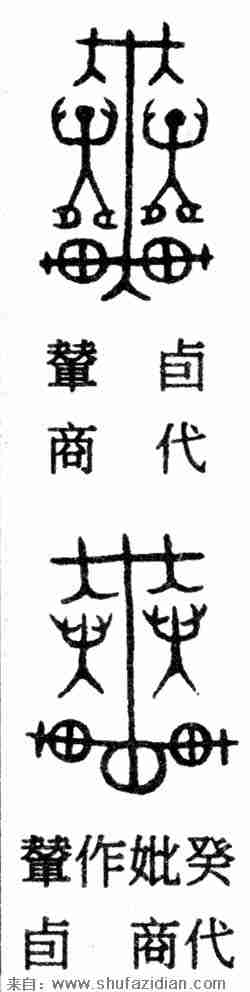 輦 卣
商 代
輦作妣癸
卣 商代
来自：www.shufazidian.com